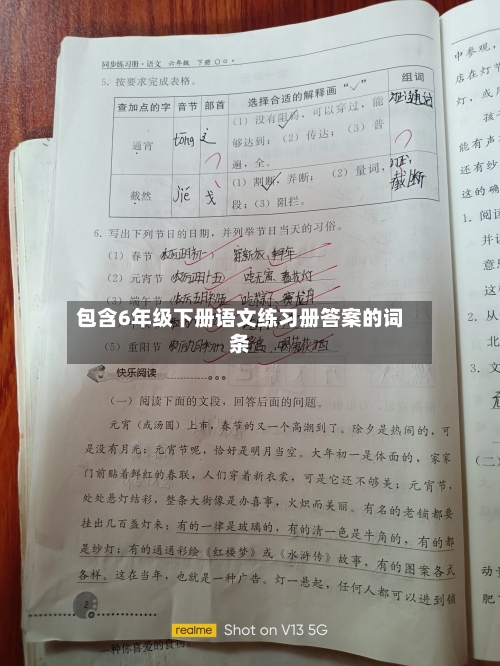 同步练习册·语文 六年级 下册
5. 按要求完成表格。
查加点的字 音节 部首 选择合适的解释画“✓” 组词
通宵 tōng 辶 (1)没有阻碍,可以穿过,能够达到;(2)传达;(3)普遍,全。
截然 jié 戈 (1)割断,弄断;(2)量词,段;(3)阻拦。 截断
6. 写出下列节日的日期,并列举节日当天的习俗。
(1)春节
(2)元宵节
(3)端午节
包含6年级下册语文练习册答案的词
条
(5)重阳节
快乐阅读
(一)阅读下面的文段,回答后面的问题。
元宵(或汤圆)上市,春节的又一个高潮到了。除夕是热闹的,可
是没有月光;元宵节呢,恰好是明月当空。大年初一是体面的,家家
门前贴着鲜红的春联,人们穿着新衣裳,可是它还不够美;元宵节,
处处悬灯结彩,整条大街像是办喜事,火炽而美丽。有名的老铺都要
挂出几百盏灯来:有的一律是玻璃的,有的清一色是牛角的,有的都
是纱灯;有的通通彩绘《红楼梦》或《水浒传》故事,有的图案各式
各样。这在当年,也就是一种广告。灯一悬起,任何人都可以进到铺
2
一种你喜爱的食物。
中参观,
店在灯节
灯,或用
孩子
能有声
还有纱
这的确
1. 阅读
并讠
意思
这
2. 从
北
3. 文
(二)
动
肥
realme Shot on V13 5G